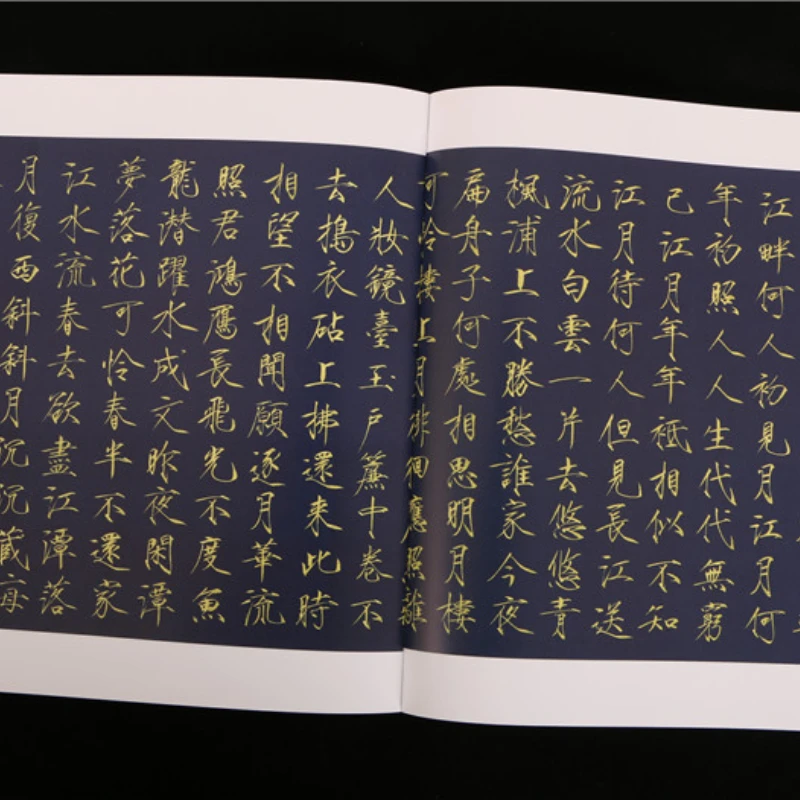 江畔何人初見月江月何
年初照人人生代代無窮
已江月年年祗相似不知
江月待何人但見長江送
流水白雲一片去悠悠青
楓浦上不勝愁誰家今夜
扁舟子何處相思明月樓
可怜樓上月徘徊應照離
人妝鏡臺玉戶簾中卷不
去搗衣砧上拂還来此時
相望不相聞願逐月華流
照君鴻鴈長飛光不度魚
龍潜躍水成文昨夜閑潭
夢落花可怜春半不還家
江水流春去欲盡江潭落
月復西斜斜月沉沉藏海